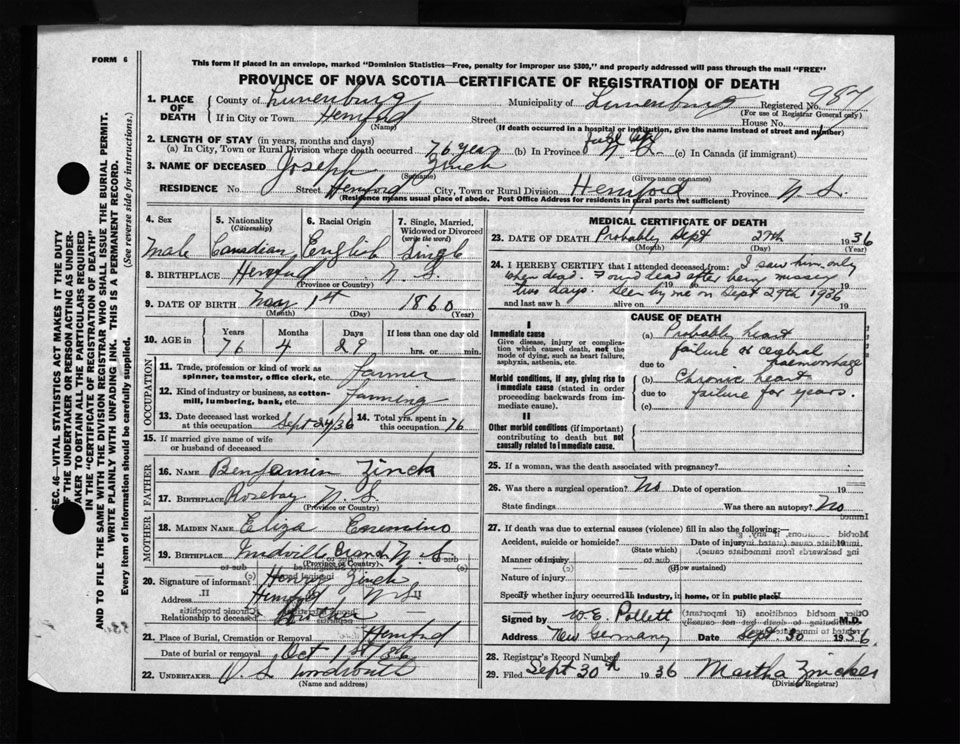 FORM 6
This form if placed in an envelope, marked "Dominion Statistics—Free, penalty for improper use $300," and properly addressed will pass through the mail "FREE"
PROVINCE OF NOVA SCOTIA—CERTIFICATE OF REGISTRATION OF DEATH
1. PLACE OF DEATH County of Lunenburg Municipality of Lunenburg Registered No. 987
(For use of Registrar General only)
If in City or Town Hemford Street House No.
(Name) (If death occurred in a hospital or institution, give the name instead of street and number)
2. LENGTH OF STAY (in years, months and days)
(a) In City, Town or Rural Division where death occurred 76 year (b) In Province N.S. (c) In Canada (if immigrant)
3. NAME OF DECEASED Joseph Zinck
(Surname) (Given name or names)
RESIDENCE No Street Hemford City, Town or Rural Division Hemford Province N.S.
(Residence means usual place of abode. Post Office Address for residents in rural parts not sufficient)
4. Sex Male
5. Nationality (Citizenship) Canadian
6. Racial Origin English
7. Single, Married, Widowed or Divorced (write the word) Single
8. BIRTHPLACE Hemford N.S.
(Province or Country)
9. DATE OF BIRTH May 1st 1860
(Month) (Day) (Year)
10. AGE in Years 76 Months 4 Days 29 If less than one day old hrs. or min.
OCCUPATION
11. Trade, profession or kind of work as spinner, teamster, office clerk, etc. Farmer
12. Kind of industry or business, as cotton-mill, lumbering, bank, etc. Farming
13. Date deceased last worked at this occupation Sept 24/36
14. Total yrs. spent in this occupation 76
15. If married give name of wife or husband of deceased
FATHER
16. NAME Benjamin Zinck
17. BIRTHPLACE Rosebay N.S.
(Province or Country)
MOTHER
18. MAIDEN NAME Eliza
19. BIRTHPLACE N.S.
(Province or Country)
20. Signature of informant Zinck
Address Hemford N.S.
Relationship to deceased
21. Place of Burial, Cremation or Removal Hemford
Date of burial or removal Oct 1st/36
22. UNDERTAKER
(Name and address)
MEDICAL CERTIFICATE OF DEATH
23. DATE OF DEATH Probably Sept 27th 1936
(Month) (Day) (Year)
24. I HEREBY CERTIFY that I attended deceased from: I saw him only
when dead. Found dead after being missing
two days. Seen by me on Sept 29th 1936
and last saw h alive on 19
CAUSE OF DEATH
I
Immediate cause
Give disease, injury or complication which caused death, not the mode of dying, such as heart failure, asphyxia, asthenia, etc.
(a) Probably heart
failure or cerebral
due to haemorrhage
Morbid conditions, if any, giving rise to immediate cause (stated in order proceeding backwards from immediate cause).
(b) Chronic heart
due to failure for years.
(c)
II
Other morbid conditions (if important) contributing to death but not causally related to immediate cause.
25. If a woman, was the death associated with pregnancy?
26. Was there a surgical operation? No Date of operation 19
State findings Was there an autopsy? No
27. If death was due to external causes (violence) fill in also the following:—
Accident, suicide or homicide? Date of injury 19
(State which)
Manner of injury
(How sustained)
Nature of injury
Specify whether injury occurred in industry, in home, or in public place
Signed by W.E. Pollett M.D.
Address New Germany Date Sept 30 1936
28. Registrar's Record Number
29. Filed Sept 30th 1936 Martha
(Division Registrar)
SEC. 46—VITAL STATISTICS ACT MAKES IT THE DUTY OF THE UNDERTAKER OR PERSON ACTING AS UNDERTAKER TO OBTAIN ALL THE PARTICULARS REQUIRED IN THE "CERTIFICATE OF REGISTRATION OF DEATH"
AND TO FILE THE SAME WITH THE DIVISION REGISTRAR WHO SHALL ISSUE THE BURIAL PERMIT.
WRITE PLAINLY WITH UNFADING INK. THIS IS A PERMANENT RECORD.
Every item of information should be carefully supplied. (See reverse side for instructions.)